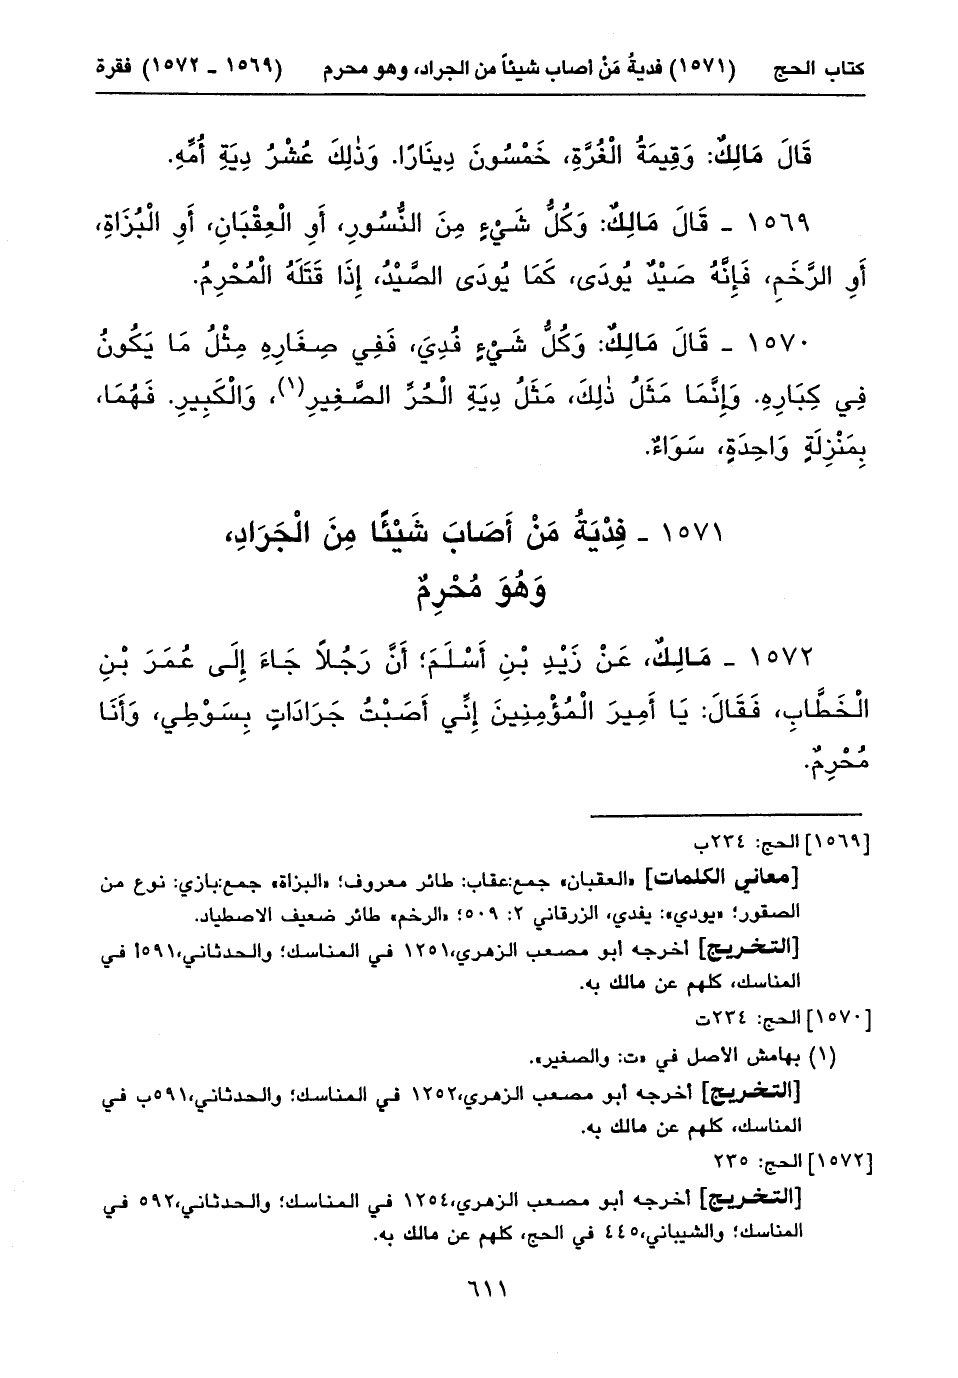 كتاب الحج (١٥٧١) فدية مَنْ أصاب شيئاً من الجراد، وهو محرم (١٥٦٩ - ١٥٧٢) فقرة
قَالَ مَالِكٌ: وَقِيمَةُ الْغُرَّةِ، خَمْسُونَ دِينَارًا. وَذٰلِكَ عُشْرُ دِيَةِ أُمِّهِ.
١٥٦٩ - قَالَ مَالِكٌ: وَكُلُّ شَيْءٍ مِنَ النُّسُورِ، أَوِ الْعِقْبَانِ، أَوِ الْبُزَاةِ،
أَوِ الرَّخَمِ، فَإِنَّهُ صَيْدٌ يُودَى، كَمَا يُودَى الصَّيْدُ، إِذَا قَتَلَهُ الْمُحْرِمُ.
١٥٧٠ - قَالَ مَالِكٌ: وَكُلُّ شَيْءٍ فُدِيَ، فَفِي صِغَارِهِ مِثْلُ مَا يَكُونُ
فِي كِبَارِهِ. وَإِنَّمَا مَثَلُ ذٰلِكَ، مَثَلُ دِيَةِ الْحُرِّ الصَّغِيرِ(١)، وَالْكَبِيرِ. فَهُمَا،
بِمَنْزِلَةٍ وَاحِدَةٍ، سَوَاءٌ.
١٥٧١ - فِدْيَةُ مَنْ أَصَابَ شَيْئًا مِنَ الْجَرَادِ،
وَهُوَ مُحْرِمٌ
١٥٧٢ - مَالِكٌ، عَنْ زَيْدِ بْنِ أَسْلَمَ؛ أَنَّ رَجُلاً جَاءَ إِلَى عُمَرَ بْنِ
الْخَطَّابِ، فَقَالَ: يَا أَمِيرَ الْمُؤْمِنِينَ إِنِّي أَصَبْتُ جَرَادَاتٍ بِسَوْطِي، وَأَنَا
مُحْرِمٌ.
[١٥٦٩] الحج: ٢٣٤ب
[معاني الكلمات] «العقبان» جمع:عقاب: طائر معروف؛ «البزاة» جمع:بازي: نوع من
الصقور؛ «يودي»: يفدي، الزرقاني ٢: ٥٠٩؛ «الرخم» طائر ضعيف الاصطياد.
[التخريج] أخرجه أبو مصعب الزهري،١٢٥١ في المناسك؛ والحدثاني،٥٩١أ في
المناسك، كلهم عن مالك به.
[١٥٧٠] الحج: ٢٣٤ت
(١) بهامش الأصل في «ت: والصغير».
[التخريج] أخرجه أبو مصعب الزهري،١٢٥٢ في المناسك؛ والحدثاني،٥٩١ب في
المناسك، كلهم عن مالك به.
[١٥٧٢] الحج: ٢٣٥
[التخريج] أخرجه أبو مصعب الزهري،١٢٥٤ في المناسك؛ والحدثاني،٥٩٢ في
المناسك؛ والشيباني،٤٤٥ في الحج، كلهم عن مالك به.
٦١١